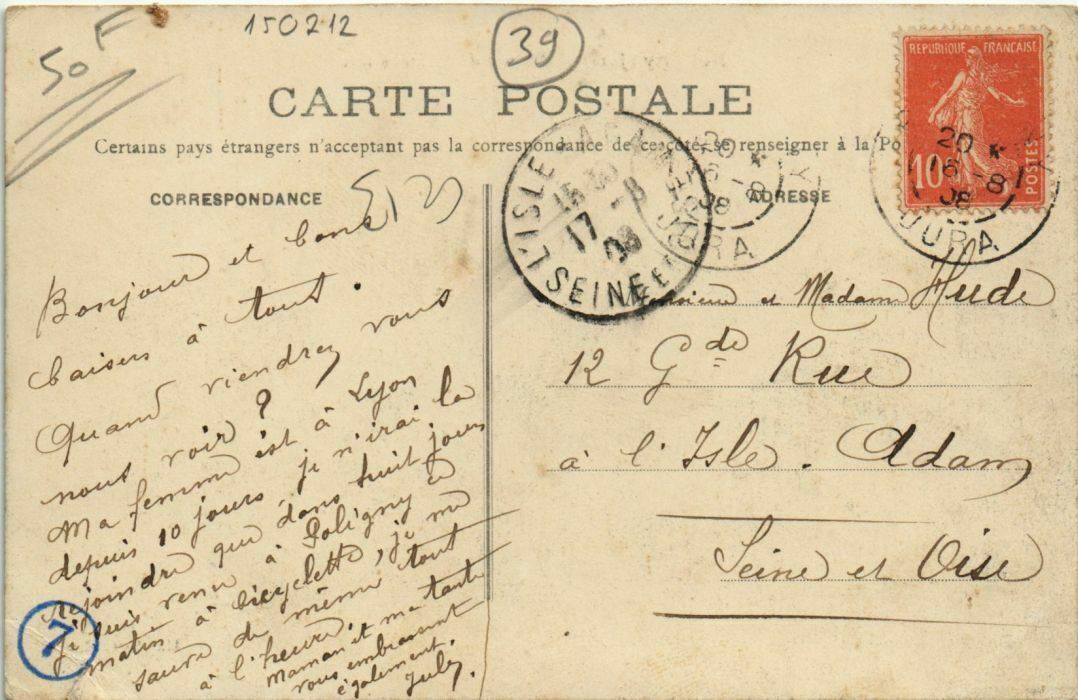 50F
150212
39
CARTE POSTALE
Certains pays étrangers n'acceptant pas la correspondance de ce côté, se renseigner à la Po
CORRESPONDANCE
ADRESSE
REPUBLIQUE FRANÇAISE
10
POSTES
20
16 - 8
08
JURA
20
16 - 8
08
JURA
L'ISLE ADAM
15 30
17 - 8
08
SEINE ET OISE
Bonjour et bons
baisers à tous.
Quand viendrez vous
nous voir ?
Ma femme est à Lyon
depuis 10 jours je n'irai la
rejoindre que dans huit jours
je suis venu à Poligny ce
matin à bicyclette, je me
sauve de même tout
à l'heure.
Maman et ma tante
vous embrassent
également.
Jules
Monsieur et Madame Hude
12 Gde Rue
à l'Isle. Adam
Seine et Oise
7